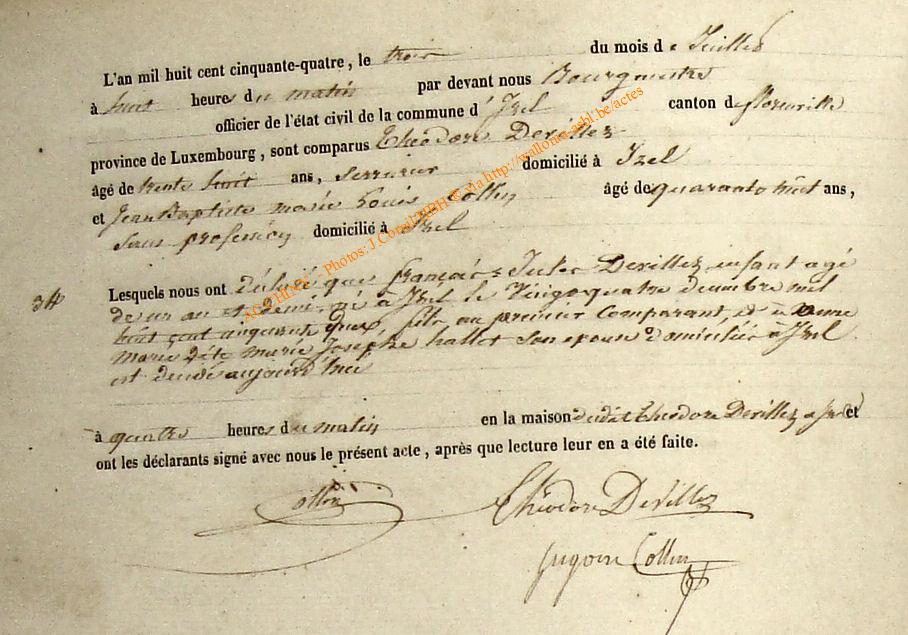 L'an mil huit cent cinquante-quatre, le trois du mois de Juillet
à huit heures du matin par devant nous Bourgmestre
officier de l'état civil de la commune d'Izel canton de florenville
province de Luxembourg, sont comparus Théodore Devillez
âgé de trente huit ans, serrurier domicilié à Izel
et Jean Baptiste marie Louis Collin âgé de quarante huit ans,
Sans profession domicilié à Izel
Lesquels nous ont déclaré que françois Jules Devillez enfant agé
de un an et demi, né à Izel le Vingt quatre décembre mil
huit cent cinquante deux fils au premier Comparant et à
marie Josephe hallot Son epouse domiciliée à Izel
est décédé aujourd'hui
à quatre heures du matin en la maison dudit Théodore Devillez a Izel et
ont les déclarants signé avec nous le présent acte, après que lecture leur en a été faite.
Collin
Théodore Devillez
Collin
Photos: J.Cornil via http://wallonia-asbl.be/actes